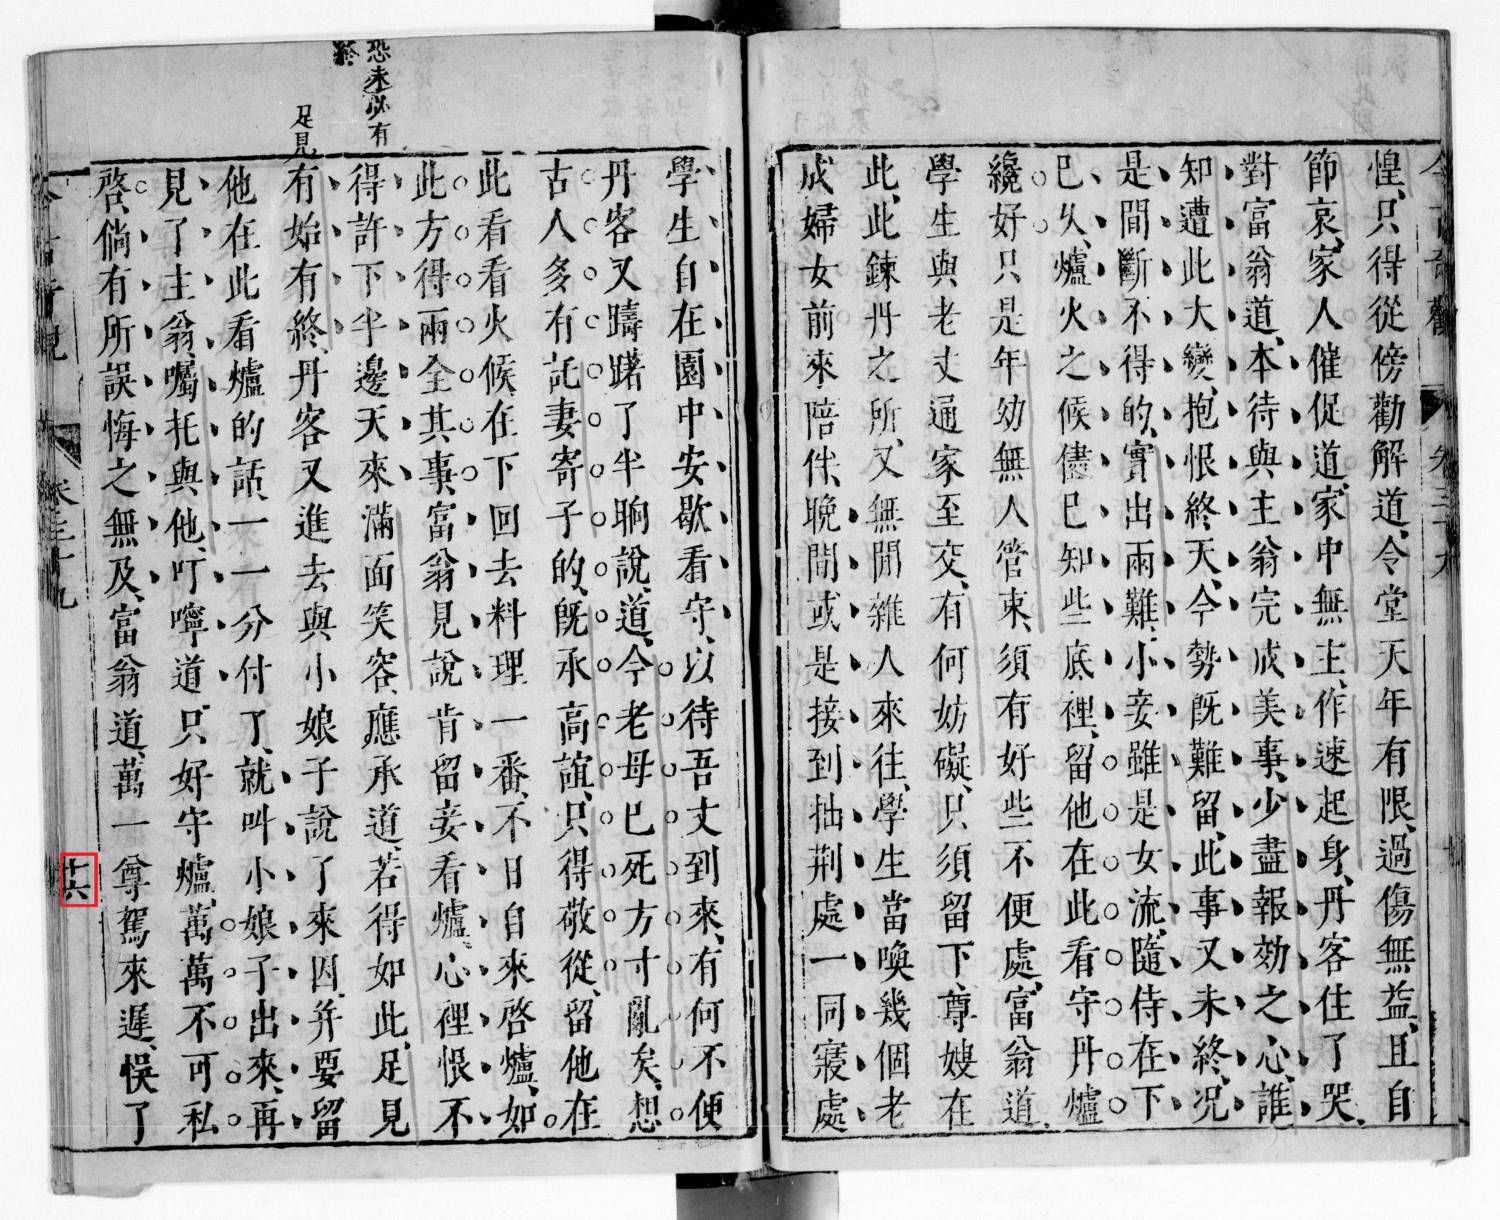 今古奇觀
卷三十九
惶、只得從傍勸解道、令堂天年有限、過傷無益、且自
節哀、家人催促道、家中無主、作速起身、丹客住了哭、
對富翁道、本待與主翁完成美事、少盡報効之心、誰
知遭此大變、抱恨終天、今勢旣難留、此事又未終、况
是間斷不得的、實出兩難、小妾雖是女流、隨侍在下
已久、爐火之候、儘已知些底裡、留他在此看守丹爐
纔好只是年幼無人管束、須有好些不便處、富翁道、
學生與老丈通家至交、有何妨礙、只須留下、尊嫂在
此、此鍊丹之所、又無閒雜人來往、學生當喚幾個老
成婦女前來陪伴、晚間或是接到拙荆處一同寢處
學生自在園中安歇看守、以待吾丈到來、有何不便
丹客又躊躇了半晌說道、今老母已死、方寸亂矣、想
古人多有託妻寄子的、旣承高誼、只得敬從、留他在
此看看火候、在下回去料理一番、不日自來啓爐、如
此方得兩全其事、富翁見說肯留妾看爐、心裡恨不
得許下半邊天來、滿面笑容應承道、若得如此、足見
有始有終、丹客又進去與小娘子說了來因、并要留
他在此看爐的話、一一分付了、就叫小娘子出來、再
見了主翁、囑托與他、叮嚀道、只好守爐、萬萬不可私
啓、倘有所誤、悔之無及、富翁道、萬一尊駕來遲、悞了
恐未必有
終
足見
今古奇觀
卷三十九
十六